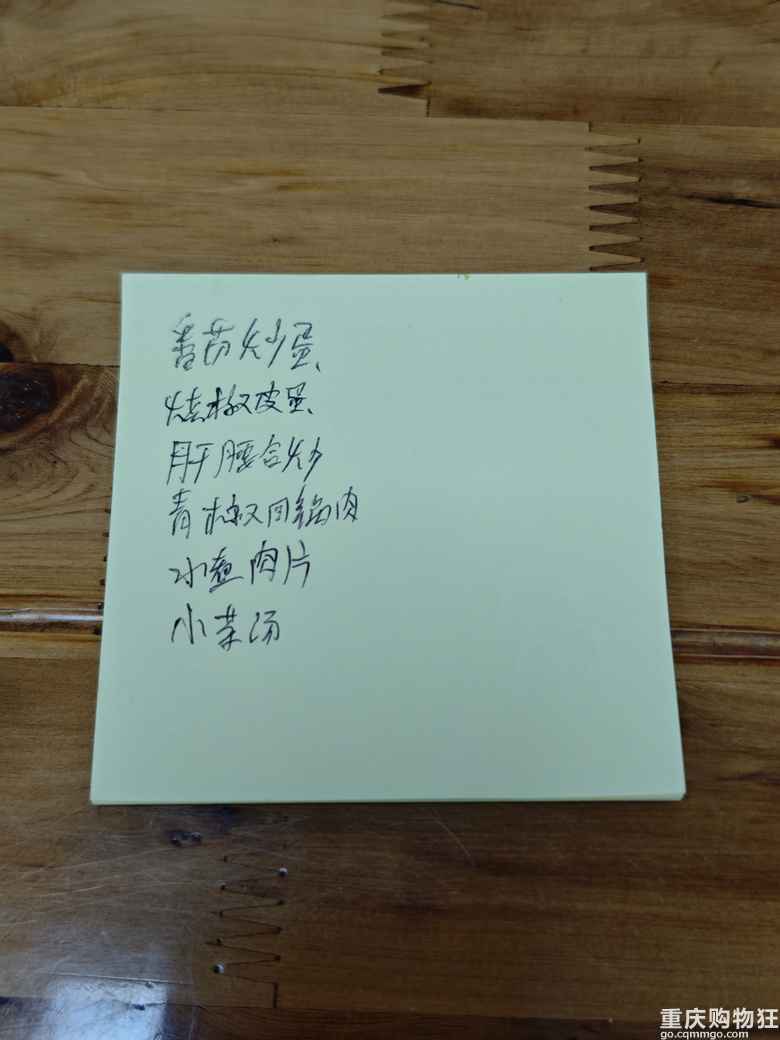 番茄炒蛋
烧椒皮蛋
肝腰合炒
青椒回锅肉
水煮肉片
小菜汤
重庆购物狂
go.cqmmgo.com